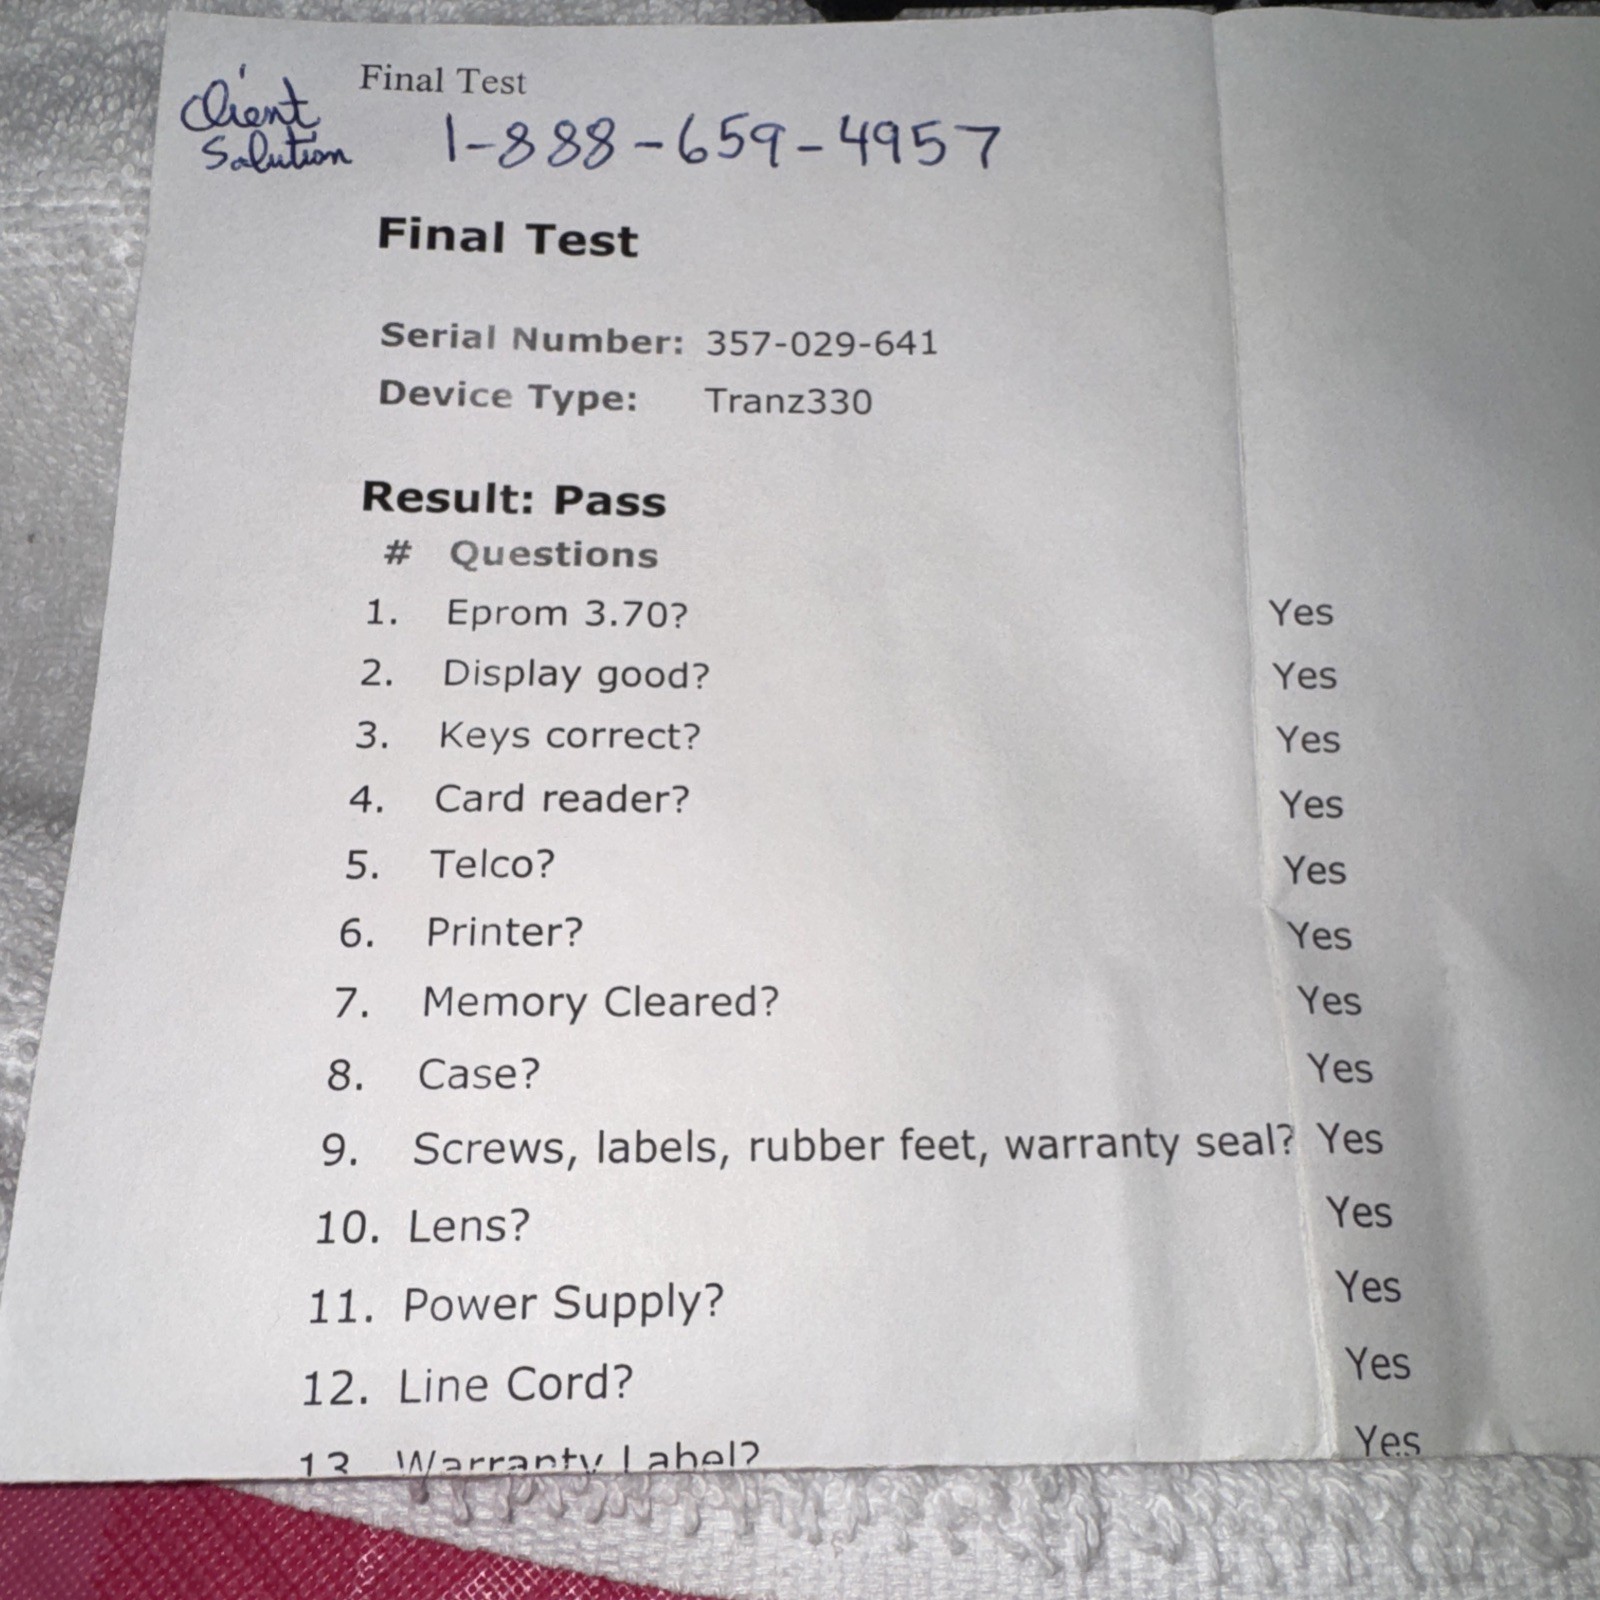 Final Test
Client
Solution
1-888-659-4957
Final Test
Serial Number: 357-029-641
Device Type: Tranz330
Result: Pass
# Questions
1. Eprom 3.70? Yes
2. Display good? Yes
3. Keys correct? Yes
4. Card reader? Yes
5. Telco? Yes
6. Printer? Yes
7. Memory Cleared? Yes
8. Case? Yes
9. Screws, labels, rubber feet, warranty seal? Yes
10. Lens? Yes
11. Power Supply? Yes
12. Line Cord? Yes
13 Warranty Label? Yes